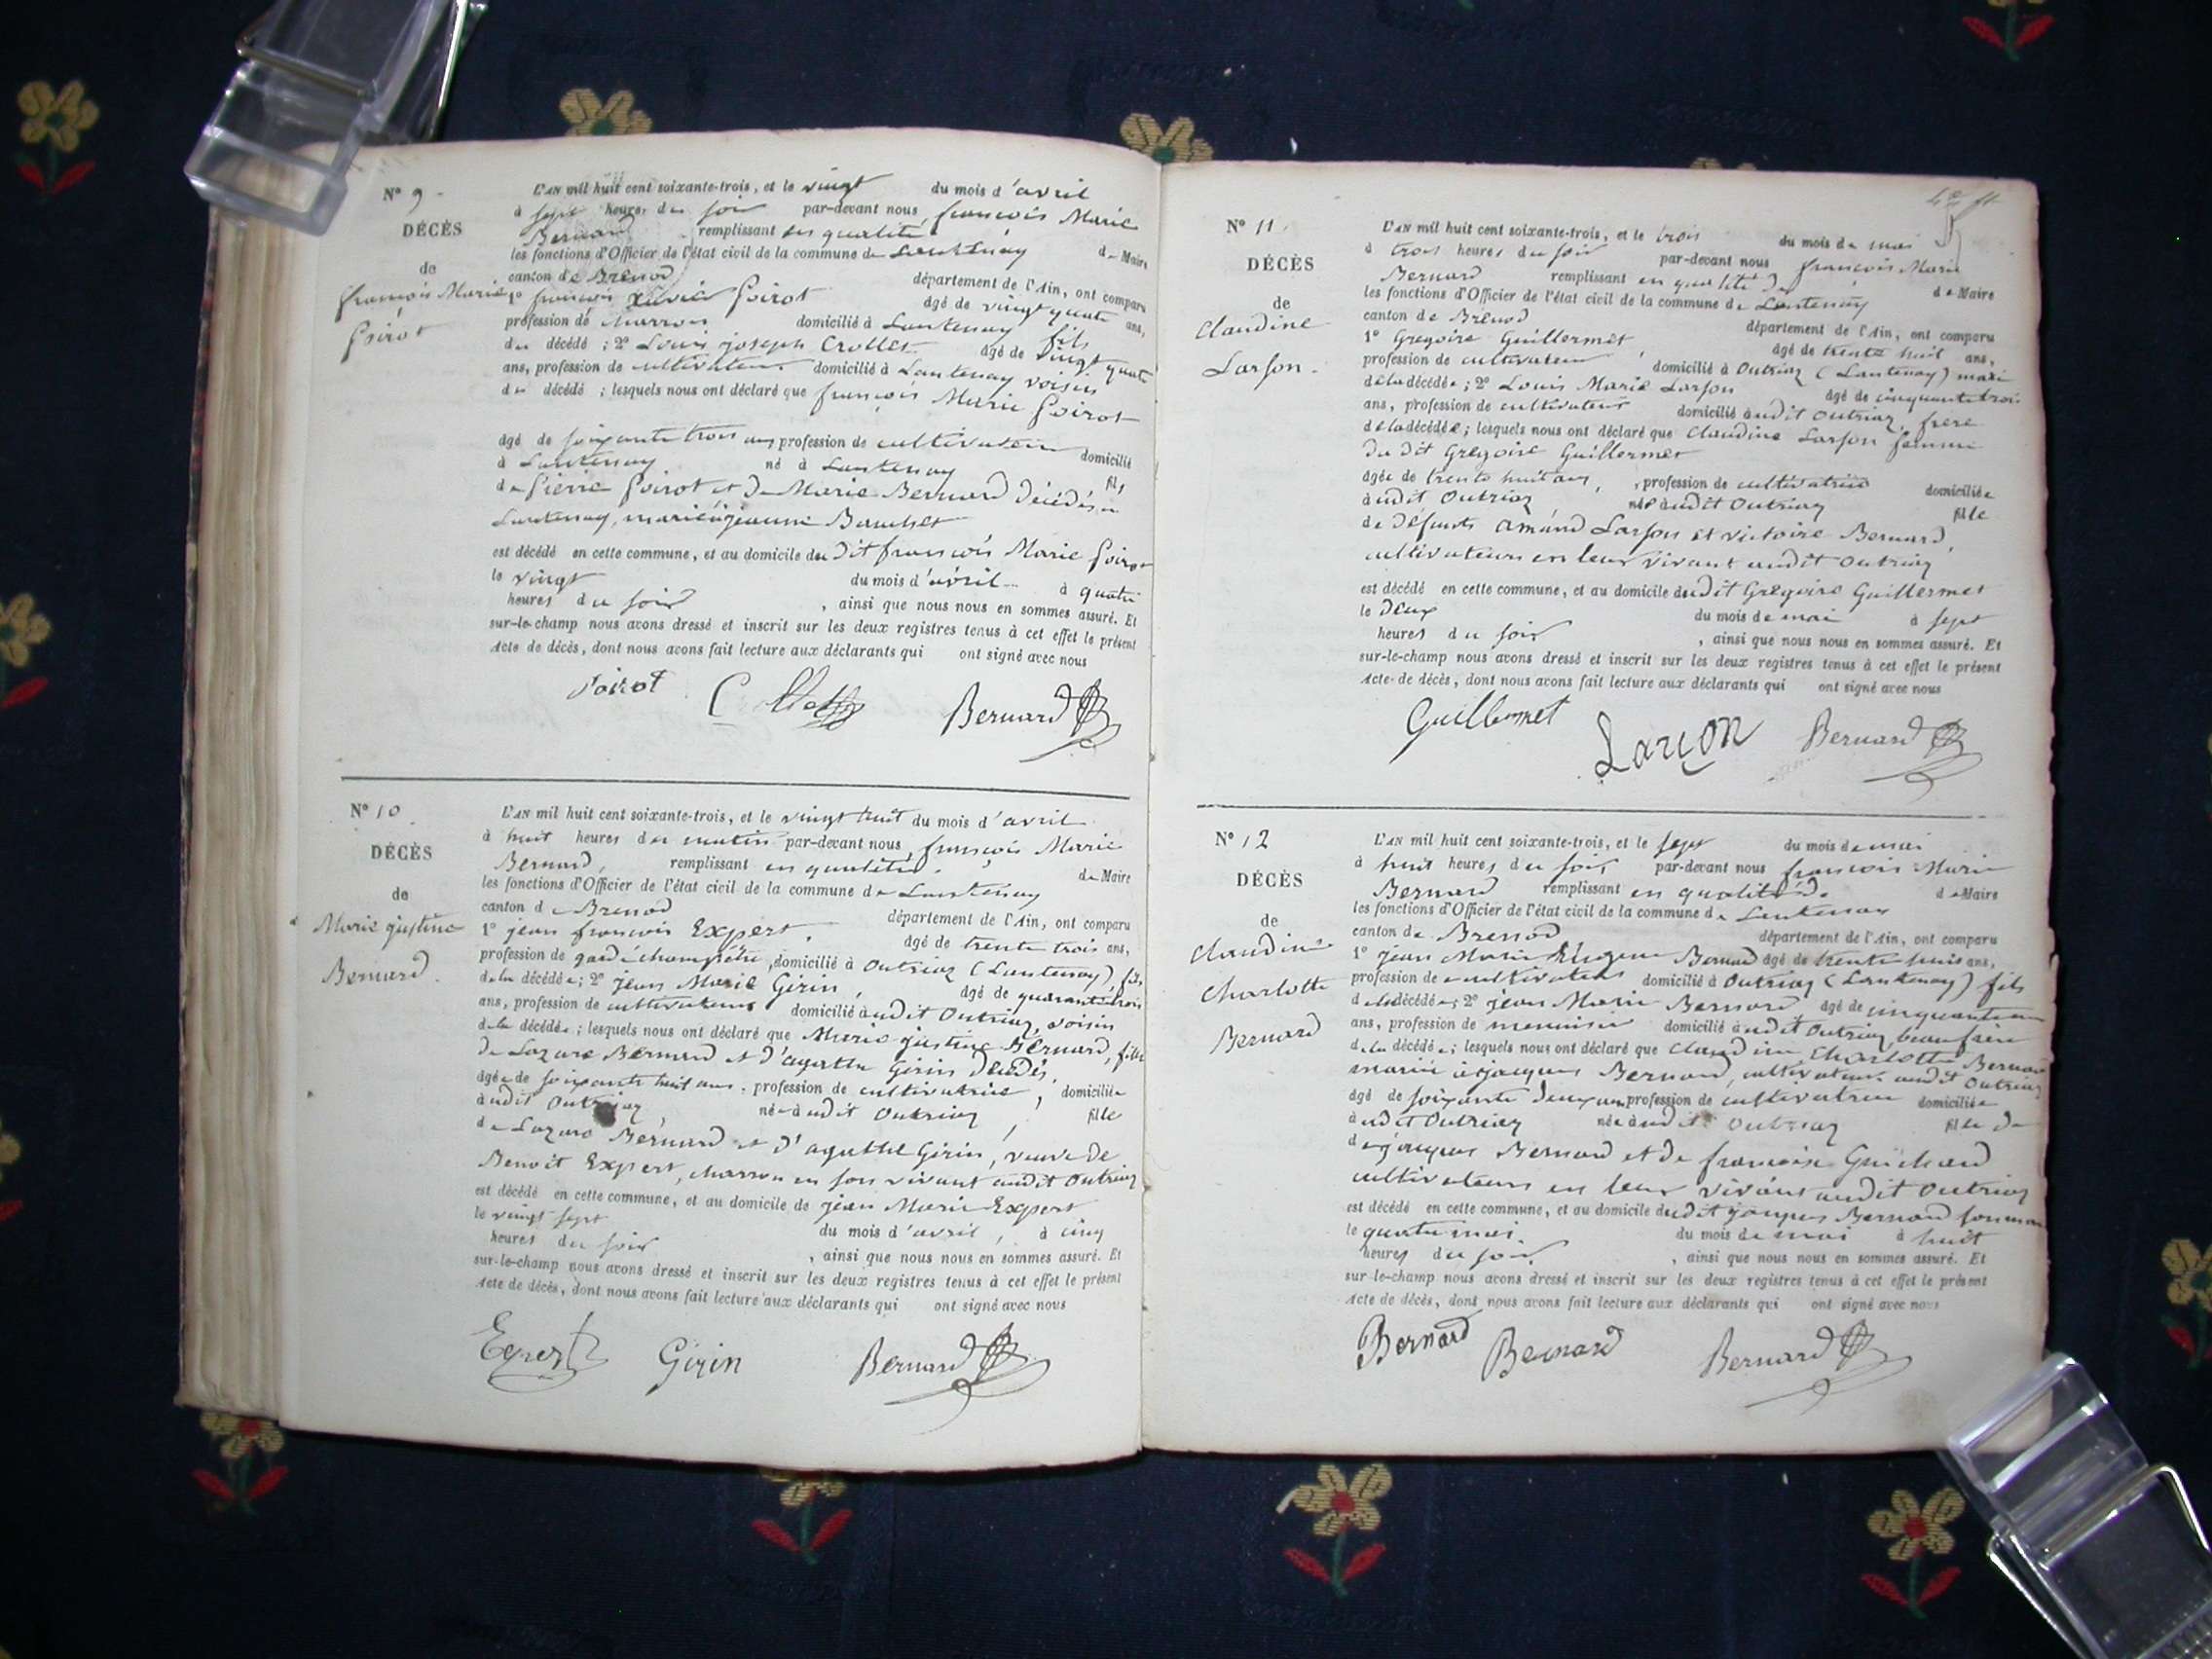 N° 9
DÉCÈS
de
françois Marie
Poirot
L'AN mil huit cent soixante-trois, et le vingt du mois d'avril
à sept heures du soir par-devant nous, françois Marie
Bernard remplissant en qualité
les fonctions d'Officier de l'état civil de la commune de Lantenay de Maire
canton de Brenod département de l'Ain, ont comparu
1° françois xavier Poirot âgé de vingt quatre ans,
profession de charron domicilié à Lantenay fils
du décédé ; 2° Louis joseph Crollet âgé de vingt quatre
ans, profession de cultivateur domicilié à Lantenay voisin
du décédé ; lesquels nous ont déclaré que françois Marie Poirot
âgé de soixante trois ans profession de cultivateur domicilié
à Lantenay né à Lantenay fils
de Pierre Poirot et de Marie Bernard décédés à
Lantenay, marié à jeanne
est décédé en cette commune, et au domicile du dit françois Marie Poirot
le vingt du mois d'avril à quatre
heures du soir , ainsi que nous nous en sommes assuré. Et
sur-le-champ nous avons dressé et inscrit sur les deux registres tenus à cet effet le présent
Acte de décès, dont nous avons fait lecture aux déclarants qui ont signé avec nous
Poirot Bernard
N° 10
DÉCÈS
de
Marie justine
Bernard
L'AN mil huit cent soixante-trois, et le vingt huit du mois d'avril
à huit heures du matin par-devant nous, françois Marie
Bernard, remplissant en qualité
les fonctions d'Officier de l'état civil de la commune de Lantenay de Maire
canton de Brenod département de l'Ain, ont comparu
1° jean françois Expert, âgé de trente trois ans,
profession de garde champêtre, domicilié à Outriaz (Lantenay), fils
de la décédée ; 2° jean Marie Girin, âgé de quarante trois
ans, profession de cultivateur domicilié audit Outriaz, voisin
de la décédée ; lesquels nous ont déclaré que Marie justine Bernard, fille
de Lazare Bernard et d'agathe Girin décédés,
âgée de soixante huit ans, profession de cultivatrice, domiciliée
audit Outriaz, née audit Outriaz, fille
de Lazare Bernard et d'agathe Girin, veuve de
Benoit Expert, charron en son vivant audit Outriaz
est décédé en cette commune, et au domicile de jean Marie Expert
le vingt sept du mois d'avril, à cinq
heures du soir , ainsi que nous nous en sommes assuré. Et
sur-le-champ nous avons dressé et inscrit sur les deux registres tenus à cet effet le présent
Acte de décès, dont nous avons fait lecture aux déclarants qui ont signé avec nous
Girin Bernard
N° 11
DÉCÈS
de
Claudine
Larson
L'AN mil huit cent soixante-trois, et le trois du mois de mai
à trois heures du soir par-devant nous françois Marie
Bernard remplissant en qualité
les fonctions d'Officier de l'état civil de la commune de Lantenay de Maire
canton de Brenod département de l'Ain, ont comparu
1° Gregoire Guillermet âgé de trente huit ans,
profession de cultivateur, domicilié à Outriaz (Lantenay) mari
de la décédée ; 2° Louis Marie Larson âgé de cinquante trois
ans, profession de cultivateur domicilié audit Outriaz, frere
de la décédée ; lesquels nous ont déclaré que Claudine Larson femme
du dit Gregoire Guillermet
âgée de trente huit ans, profession de cultivatrice domiciliée
audit Outriaz née audit Outriaz fille
de défunts amand Larson et victoire Bernard,
cultivateurs en leur vivant audit Outriaz
est décédé en cette commune, et au domicile dudit Gregoire Guillermet
le deux du mois de mai à sept
heures du soir , ainsi que nous nous en sommes assuré. Et
sur-le-champ nous avons dressé et inscrit sur les deux registres tenus à cet effet le présent
Acte de décès, dont nous avons fait lecture aux déclarants qui ont signé avec nous
Guillermet Larçon Bernard
N° 12
DÉCÈS
de
Claudine
Charlotte
Bernard
L'AN mil huit cent soixante-trois, et le sept du mois de mai
à huit heures du soir par-devant nous françois Marie
Bernard remplissant en qualité de Maire
les fonctions d'Officier de l'état civil de la commune de Lantenay
canton de Brenod département de l'Ain, ont comparu
1° jean Marie Eugene Bernard âgé de trente ans,
profession de cultivateur domicilié à Outriaz (Lantenay) fils
de la décédée ; 2° jean Marie Bernard, âgé de
ans, profession de menuisier domicilié audit Outriaz, beau frère
de la décédée ; lesquels nous ont déclaré que Claudine Charlotte Bernard
mariée à jacques Bernard, cultivateur audit Outriaz
âgé de soixante deux ans profession de cultivatrice domiciliée
audit Outriaz née audit Outriaz fille de
de jacques Bernard et de françoise Guichard
cultivateurs en leur vivant audit Outriaz
est décédé en cette commune, et au domicile dudit jacques Bernard son mari
le quatre mai du mois de mai à huit
heures du soir , ainsi que nous nous en sommes assuré. Et
sur-le-champ nous avons dressé et inscrit sur les deux registres tenus à cet effet le présent
Acte de décès, dont nous avons fait lecture aux déclarants qui ont signé avec nous
Bernard Bernard Bernard